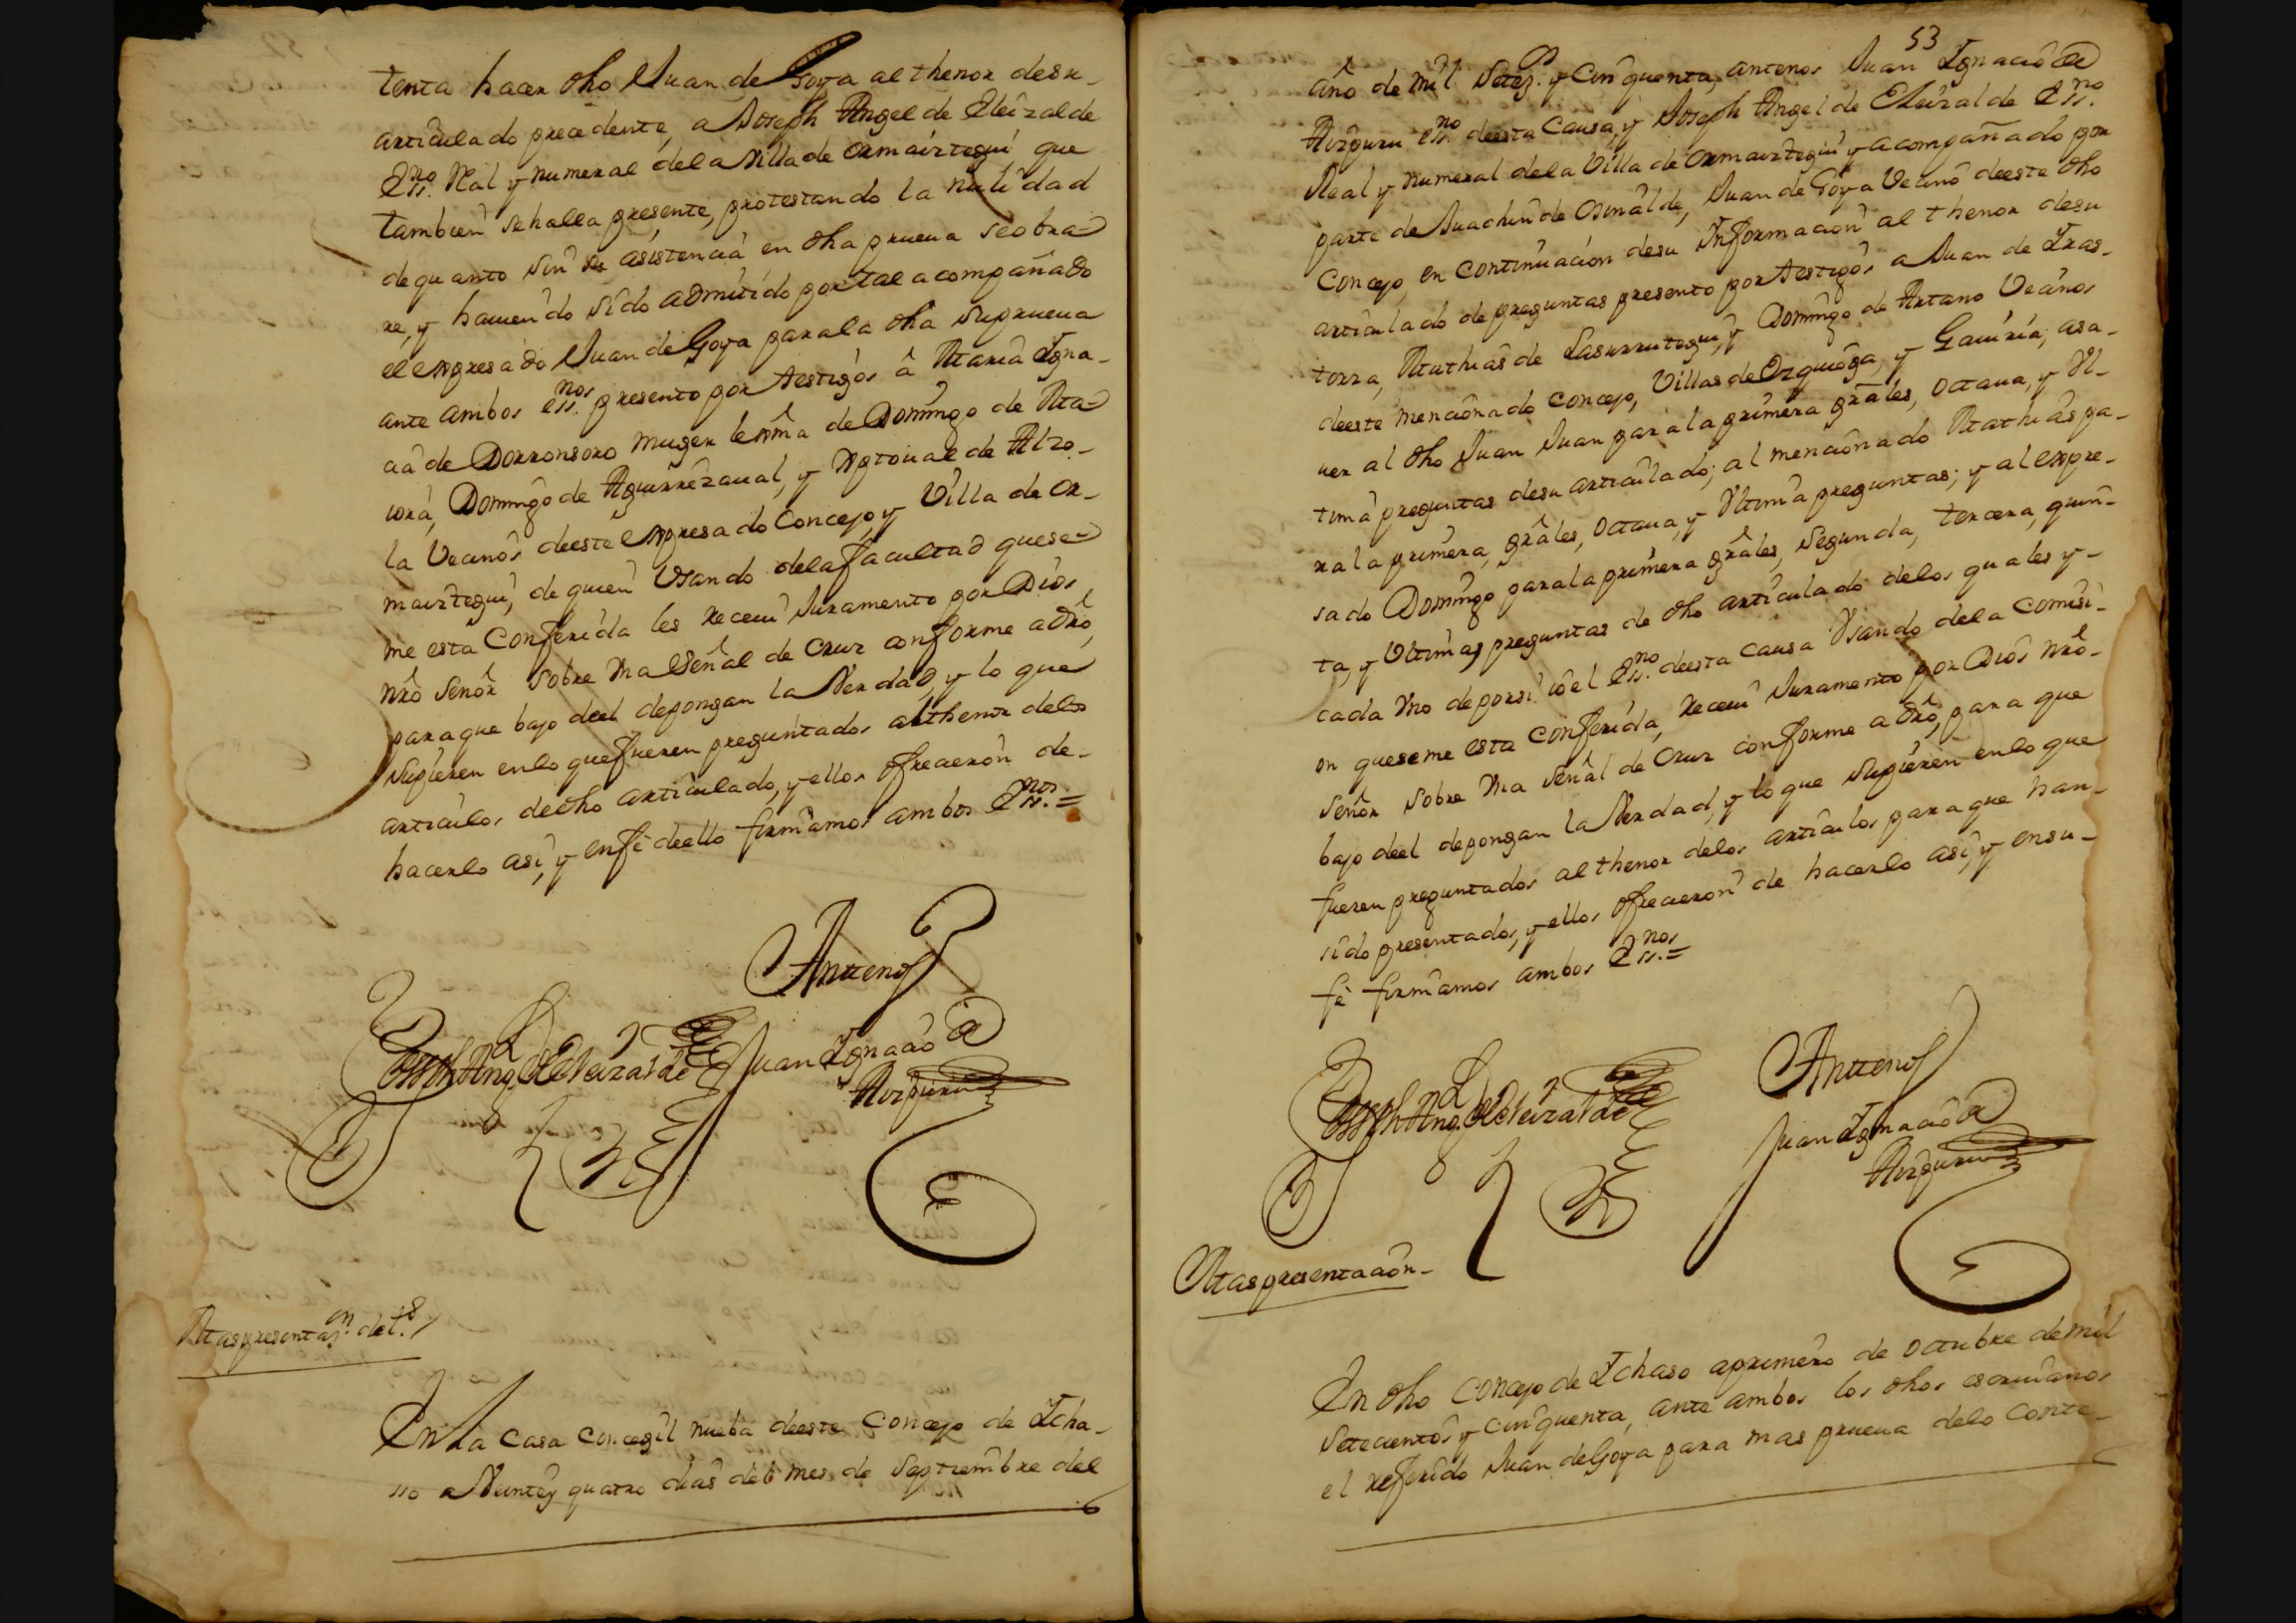 tenta hacer dho Juan de Goya al thenor de su
articulado precedente, a Joseph Angel de Eleizalde
Essno. Rál y numeral de la Villa de Ormaiztegui que
tambien se halla presente, protestando la nulidad
de quanto sin su asistencia en dha prueua se obra
re, y hauiendo sido admitido por tal acompañado
el expresado Juan de Goya para la dha su prueua
ante ambos essnos. presento por testigos â Maria Igna-
cia de Dorronsoro muger lexma de Domingo de Ma
iora, Domingo de Aguirrezaual, y Xptoual de Alzo-
la Vecinos deeste expresado Concejo, y Villa de Or-
maiztegui, de quien Vsando de la facultad que se
me esta Conferida les receui Juramento por Dios
nrô Señor sobre Vna Señal de Cruz conforme a drô,
para que bajo deel depongan la Verdad, y lo que
supieren en lo que fueren preguntados al thenor delos
articulos de dho articulado, y ellos ofrecieron de-
hacerlo asi, y en fè deello firmamos ambos Essnos. =
Anttenos
Joseph Angl. de Eleizalde Juan Ignacio de
Aizpuru
Mas presentazon. de ts.
En la Casa Concegil nueba deeste Concejo de Icha-
sso a Veinte y quatro dias del mes de Septiembre del
53
año de mil Setez. y Cinquenta, antenos Juan Ignacio de
Aizpuru essno. deesta Causa, y Joseph Angel de Eleizalde Essno.
Real y numeral de la Villa de Ormaiztegui y acompañado por
parte de Juachin de Osinalde, Juan de Goya Vecino deeste dho
Concejo en continuacion de su informacion al thenor desu
articulado de preguntas presento por testigos a Juan de Iras-
torza, Mathias de Lasurrutegui, y Domingo de Artano Vecinos
deeste mencionado Concejo, Villas de Ezquioga, y Gauiria; asa-
uer al dho Juan Juan para la primera grâles, octaua, y Vl-
tima preguntas desu articulado; al mencionado Mathias pa-
ra la primera, grâles, octaua, y Vltima preguntas; y al expre-
sado Domingo para la primera grâles, segunda, tercera, quin-
ta, y Vltimas preguntas de dho articulado delos quales y-
cada Vno de porsi io el Essno. deesta causa Vsando dela Comisi-
on queseme esta conferida, receui Juramento por Dios nrô-
Señor sobre Vna señal de Cruz conforme a drô, para que
bajo deel depongan la Verdad, y lo que supieren en lo que
fueren preguntados al thenor delos articulos para que han-
sido presentados, y ellos ofrecieron de hacerlo asi, y ensu-
fè firmamos ambos Essnos. =
Anttenos
Joseph Angl. de Eleizalde
Juan Ignacio de
Aizpuru
Mas presentacion-
En dho Concejo de Ichaso a primero de octubre de mil
Setecientos y cinquenta, ante ambos los dhos escriuanos
el referido Juan de Goya para mas prueua delo conte-